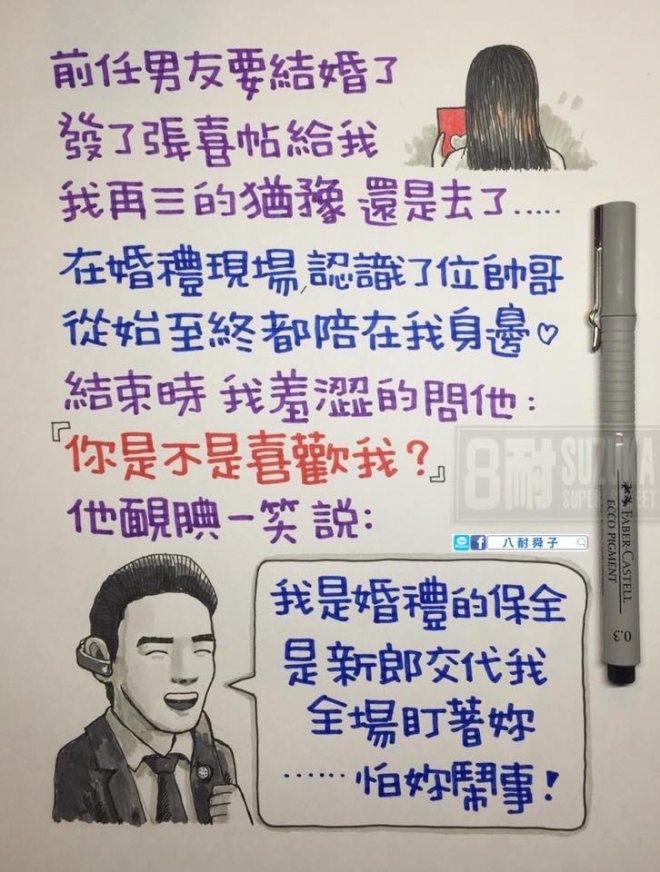 前任男友要結婚了
發了張喜帖給我
我再三的猶豫 還是去了.....
在婚禮現場,認識了位帥哥
從始至終都陪在我身邊♡
結束時 我羞澀的問他:
『你是不是喜歡我?』
他靦腆一笑 說:
8耐 SUZU
SUPER
八耐舜子
FABER-CASTELL
ECCO PIGMENT
0.3
我是婚禮的保全
是新郎交代我
全場盯著妳
......怕妳鬧事!